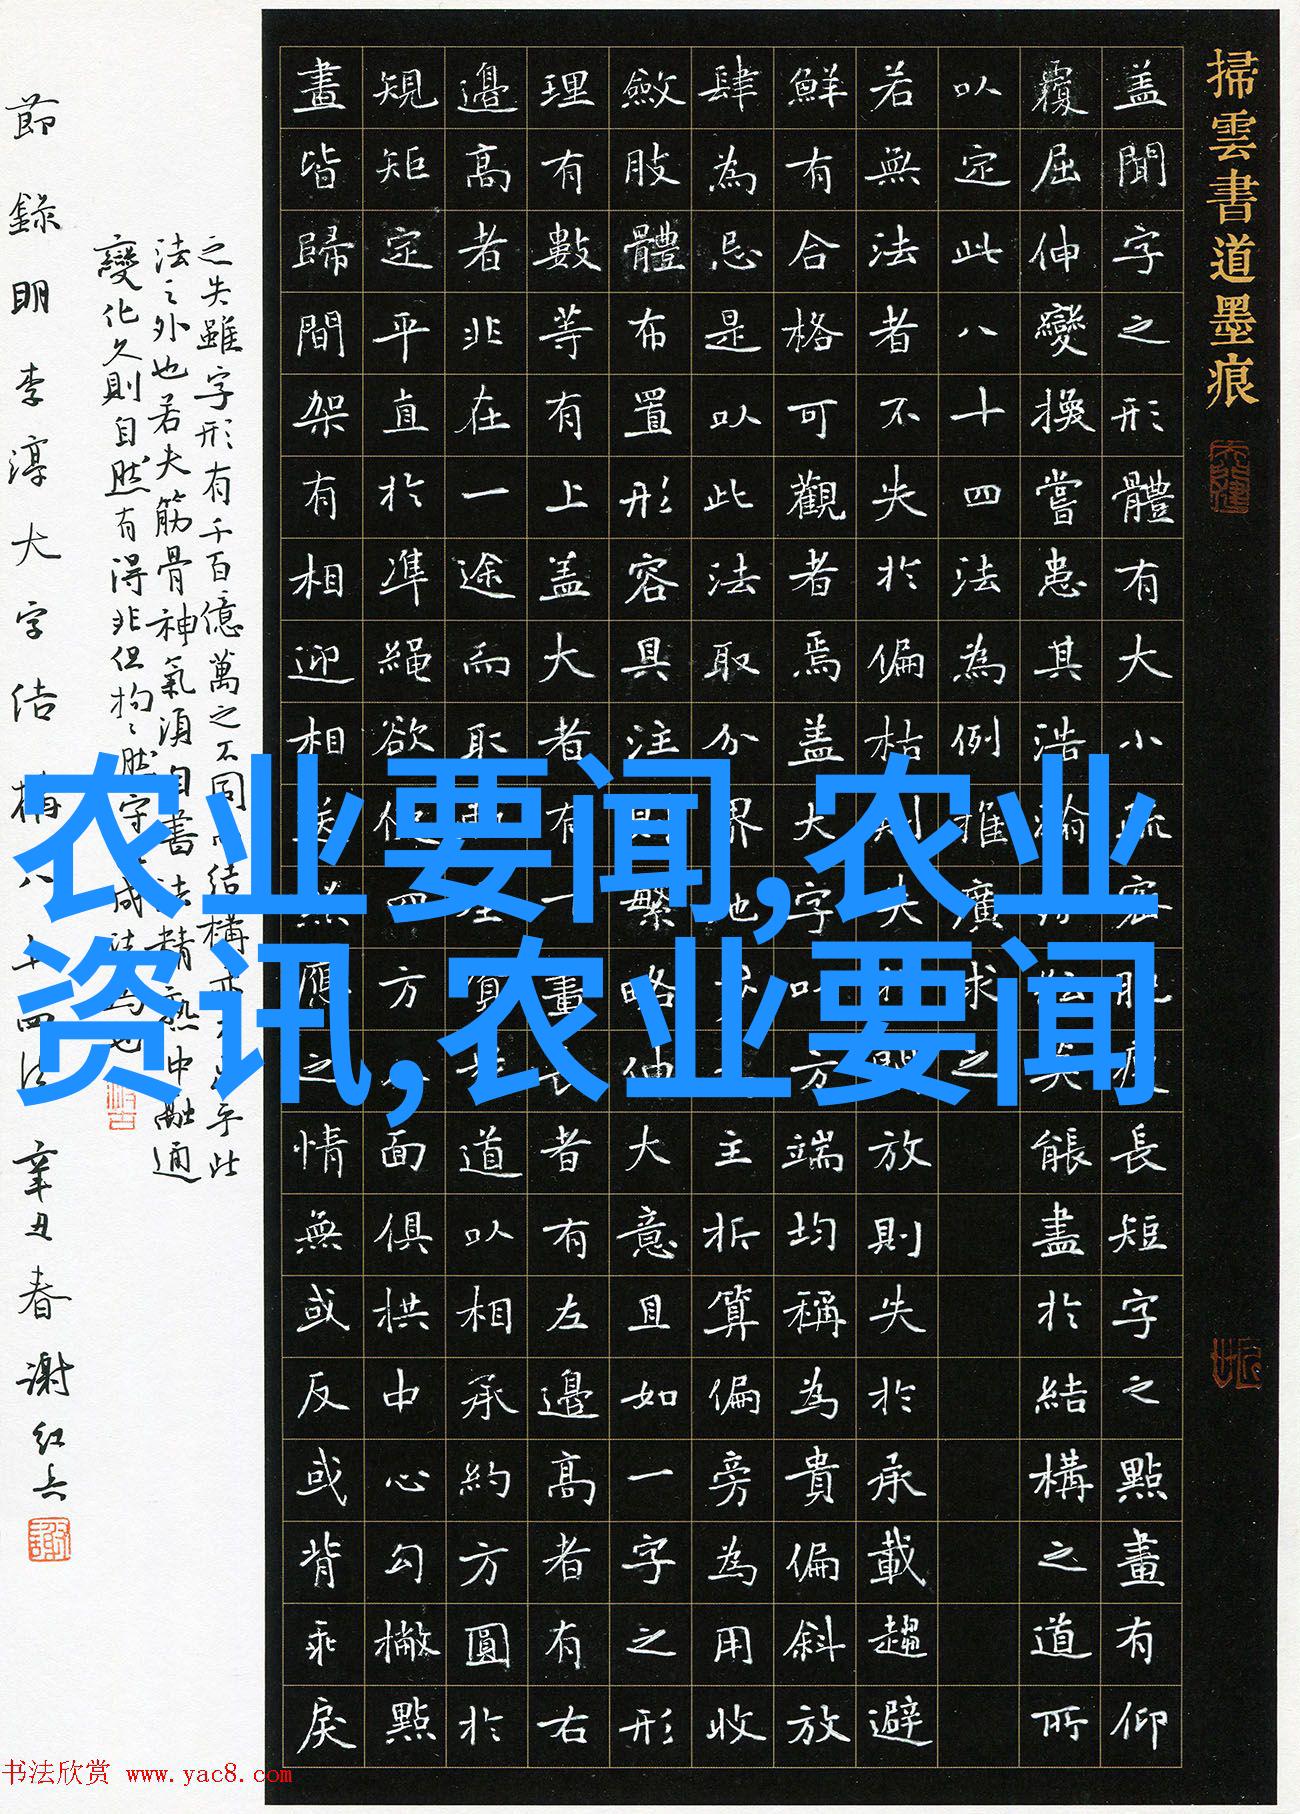 掃雲書道墨痕
盖聞字之形體有大小疏密肥瘦長短字之點畫有仰
覆屈伸變換嘗患其浩瀚能盡於結構之道所
以定此八十四法為例推廣求之
若無法者不失於偏枯則失放則失於承載趨避
鮮有合格可觀者焉盖大字以方端均稱為貴偏斜放
肆為忌是以此法取分界地主折算偏旁為用收
斂肢體布置形容具注則繁略伸大意且如一字之形
理有數等有上盖大者有下畫長者有左邊高者有右
邊高者非在一途而取道以相承約方圓於
規矩定平直於準繩欲使四方八面俱拱中心勾撇點
畫皆歸間架有相迎相送照應之情無或反或背乖戾
之失雖字形有千百億萬之不同而結構亦不出乎此
法之外也若夫筋骨神氣須自書法精熟中融通
變化久則自然有得非但拘々然守成法為也
節錄明李淳大字结構八十四法 辛丑春 謝红兵
农业要闻,农业
资讯,农业要闻
书法欣赏 www.yac8.com